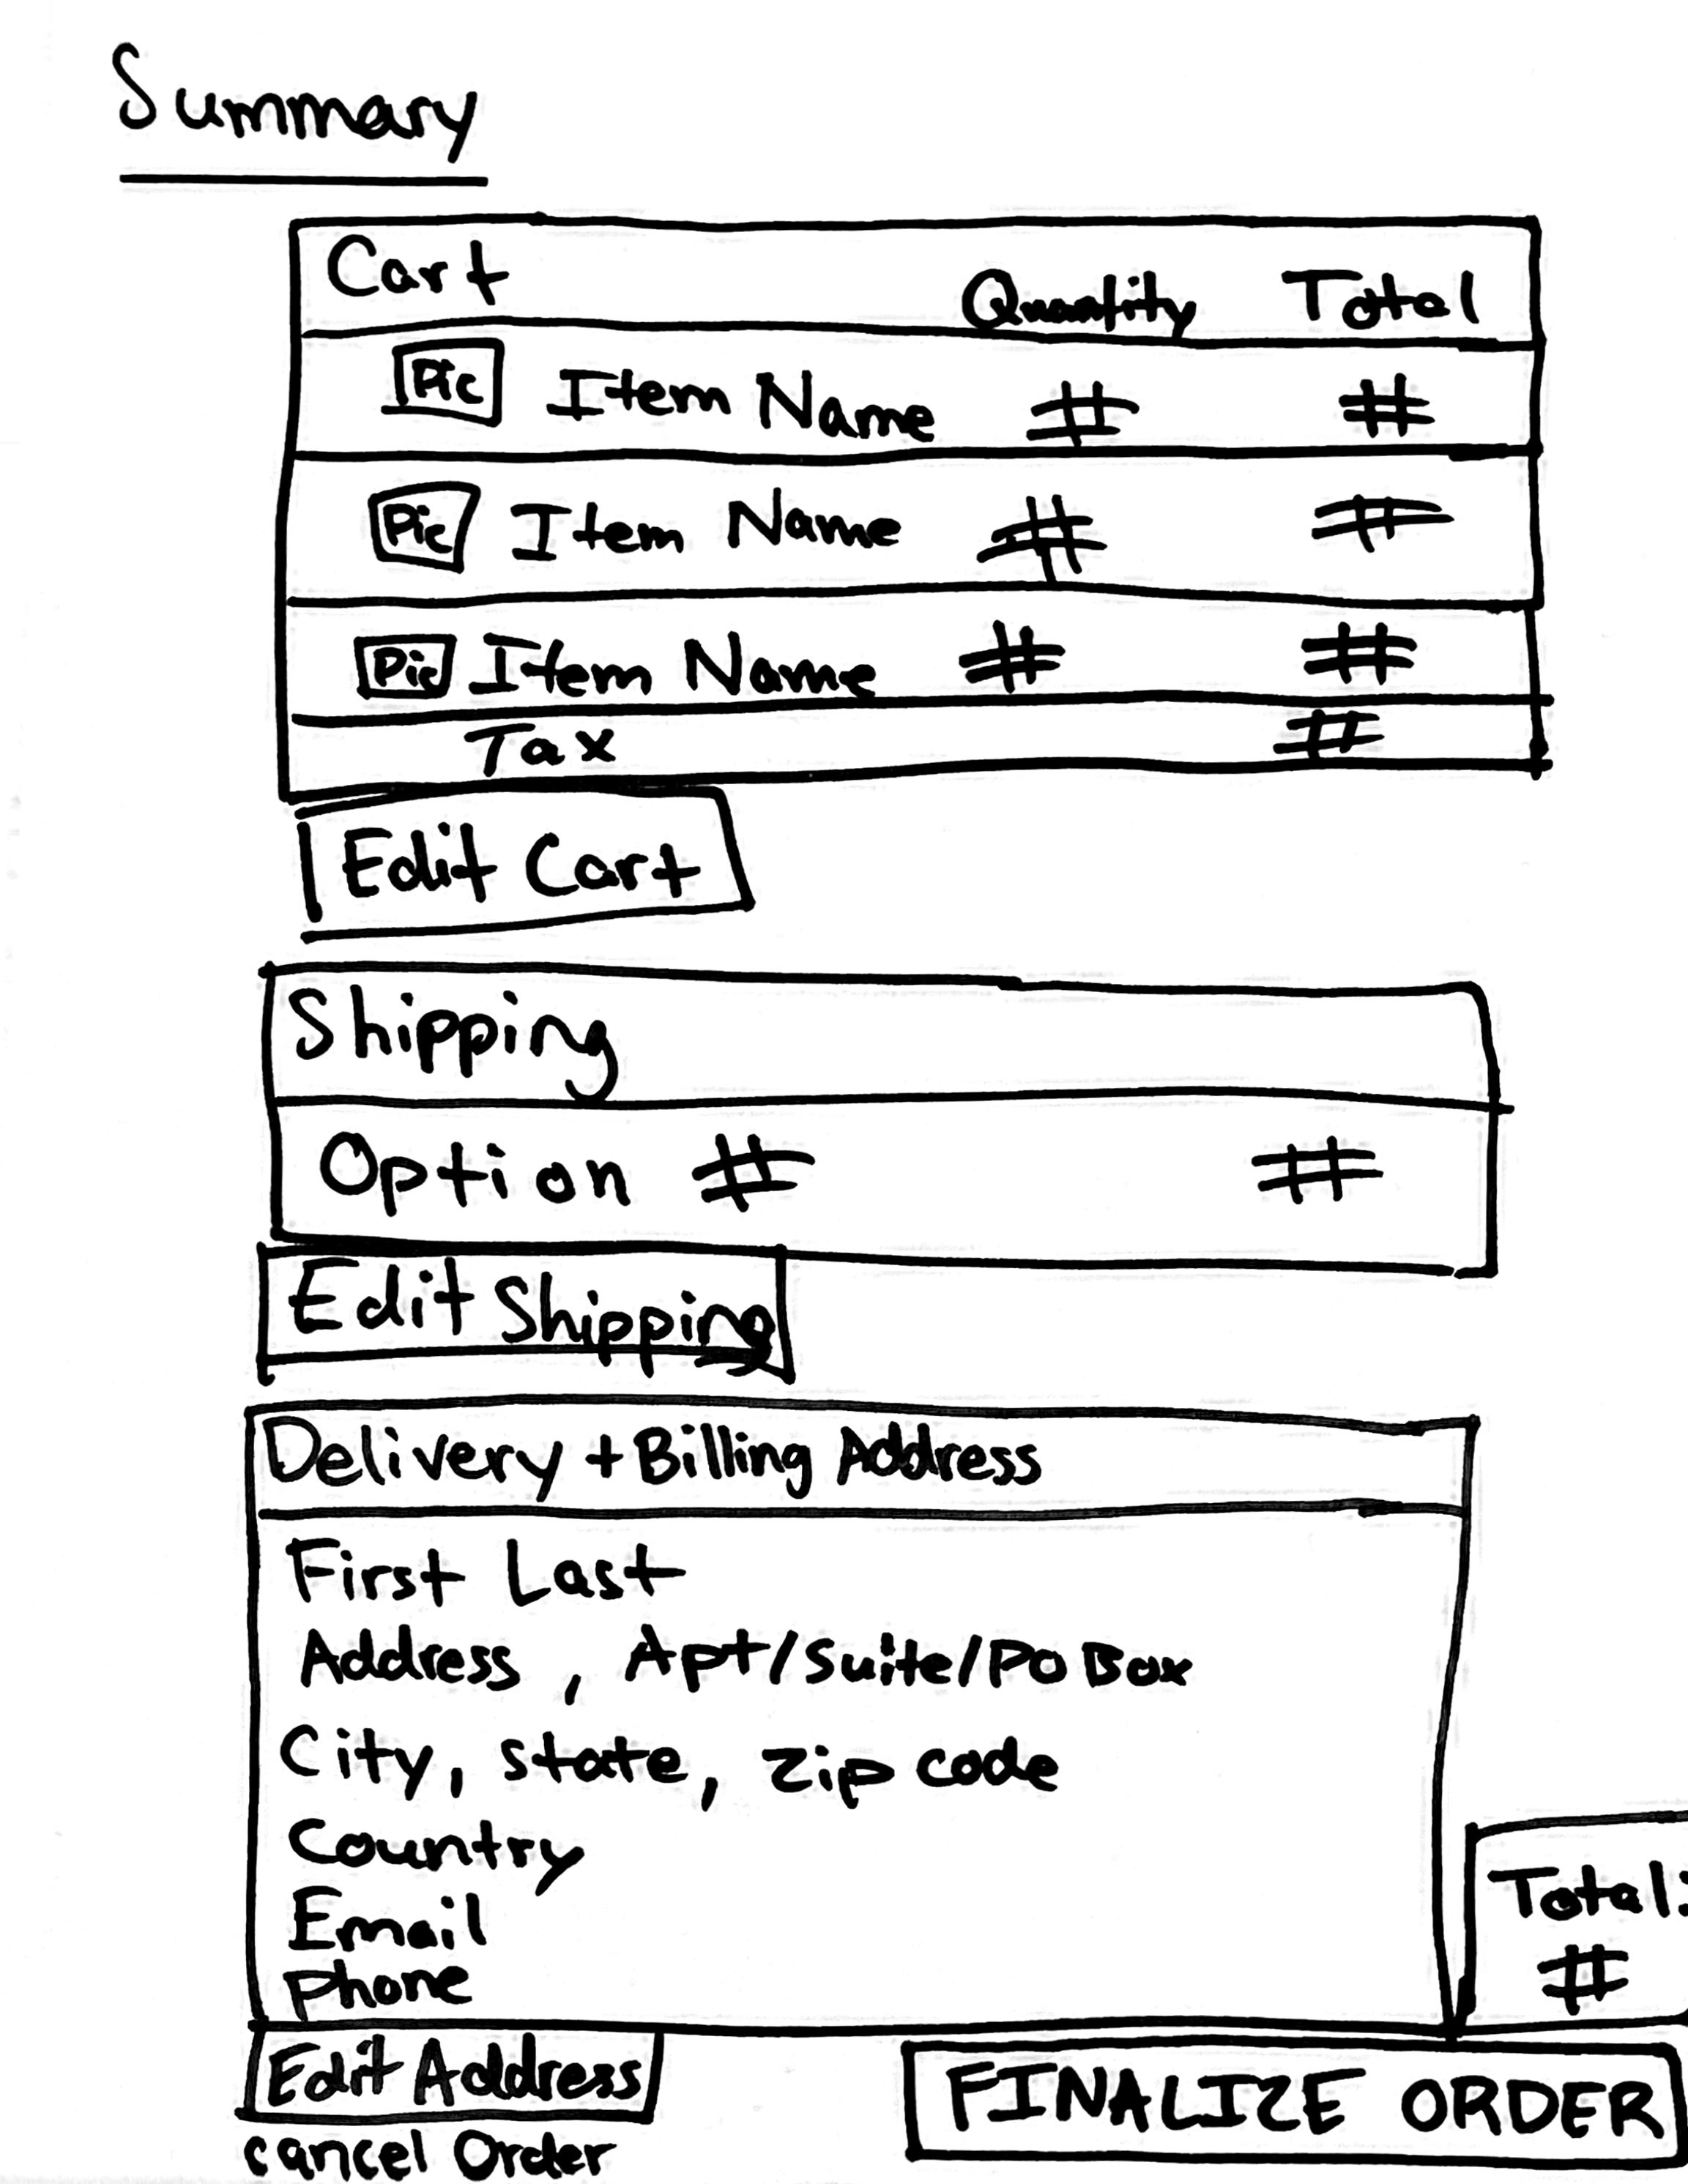 Summary
Cart Quantity Total
Pic Item Name # #
Pic Item Name # #
Pic Item Name # #
Tax #
Edit Cart
Shipping
Option # #
Edit Shipping
Delivery + Billing Address
First Last
Address, Apt/Suite/PO Box
City, state, zip code
Country
Email
Phone
Total:
#
Edit Address
FINALIZE ORDER
cancel Order